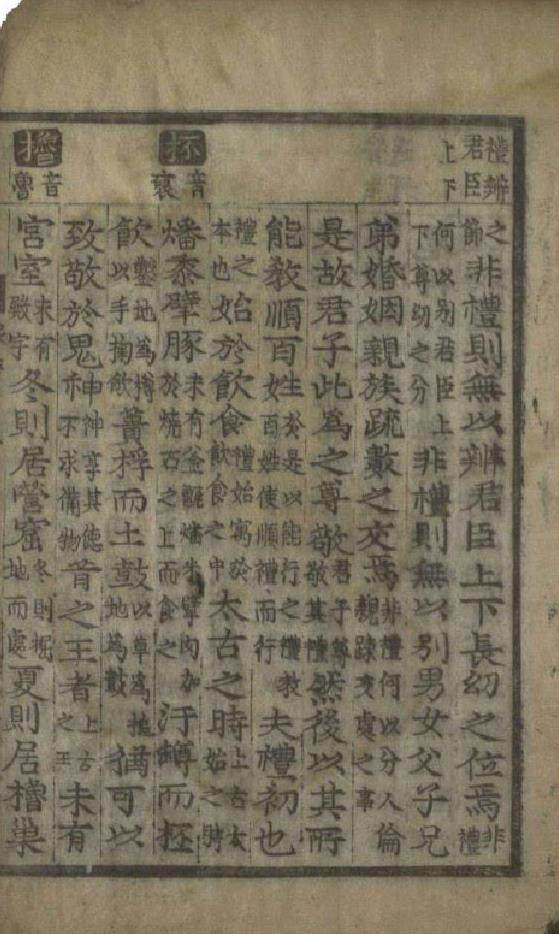 禮辨
君臣
上下
之節非禮則無以辨君臣上下長幼之位焉非禮
何以別君臣上下尊幼之分非禮則無以別男女父子兄
弟婚姻親族疏數之交焉非禮何以分人倫親疎交處之事
是故君子此爲之尊敬君子尊敬其禮然後以其所
能敎順百姓於是以能行之禮教百姓使順禮而行夫禮初也
禮之本也始於飮食禮始寓於飮食之中太古之時上古太始之時
抔
音裒
燔黍擘豚未有釜甑燔米擘肉加於燒石之上而食之汙罇而抔
飮鑿地爲罇以手掬飮蕢桴而土鼓以草爲搥地爲鼓猶可以
致敬於鬼神神享其德不求備物昔之王者上古之王未有
櫓
音魯
宮室未有殿宇冬則居營窟冬則掘地而處夏則居櫓巢